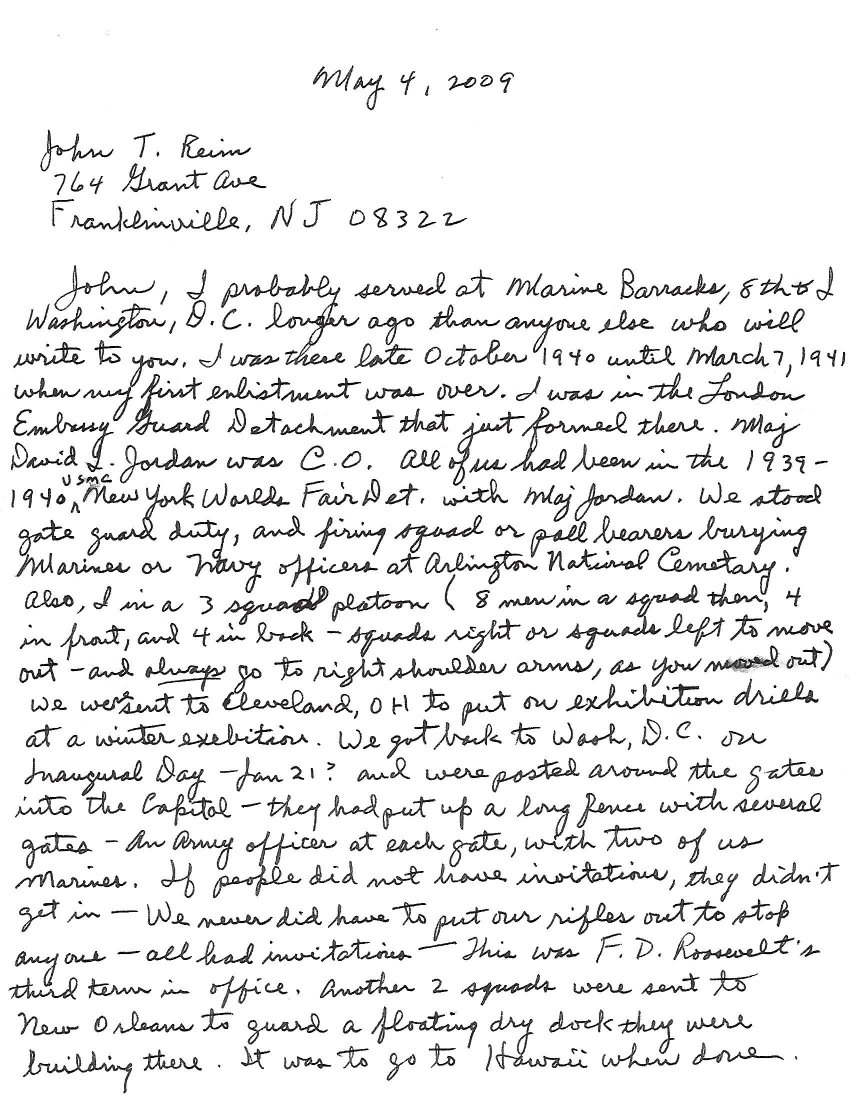 May 4, 2009
John T. Reim
764 Grant Ave
Franklinville, NJ 08322
John, I probably served at Marine Barracks, 8th & I
Washington, D.C. longer ago than anyone else who will
write to you. I was there late October 1940 until March 7, 1941
when my first enlistment was over. I was in the London
Embassy Guard Detachment that just formed there. Maj
David L. Jordan was C.O. All of us had been in the 1939-
1940 USMC New York Worlds Fair Det. with Maj Jordan. We stood
gate guard duty, and firing squad or pall bearers burying
Marines or Navy officers at Arlington National Cemetary.
Also, I in a 3 squad platoon (8 men in a squad then, 4
in front, and 4 in back - squads right or squads left to move
out - and always go to right shoulder arms, as you moved out)
we were sent to Cleveland, OH to put on exhibition drills
at a winter exebition. We got back to Wash, D.C. on
Inaugural Day - Jan 21? and were posted around the gates
into the Capitol - they had put up a long fence with several
gates - An Army officer at each gate, with two of us
Marines. If people did not have invitations, they didn't
get in - We never did have to put our rifles out to stop
anyone - all had invitations - This was F. D. Roosevelt's
third term in office. Another 2 squads were sent to
New Orleans to guard a floating dry dock they were
building there. It was to go to Hawaii when done.